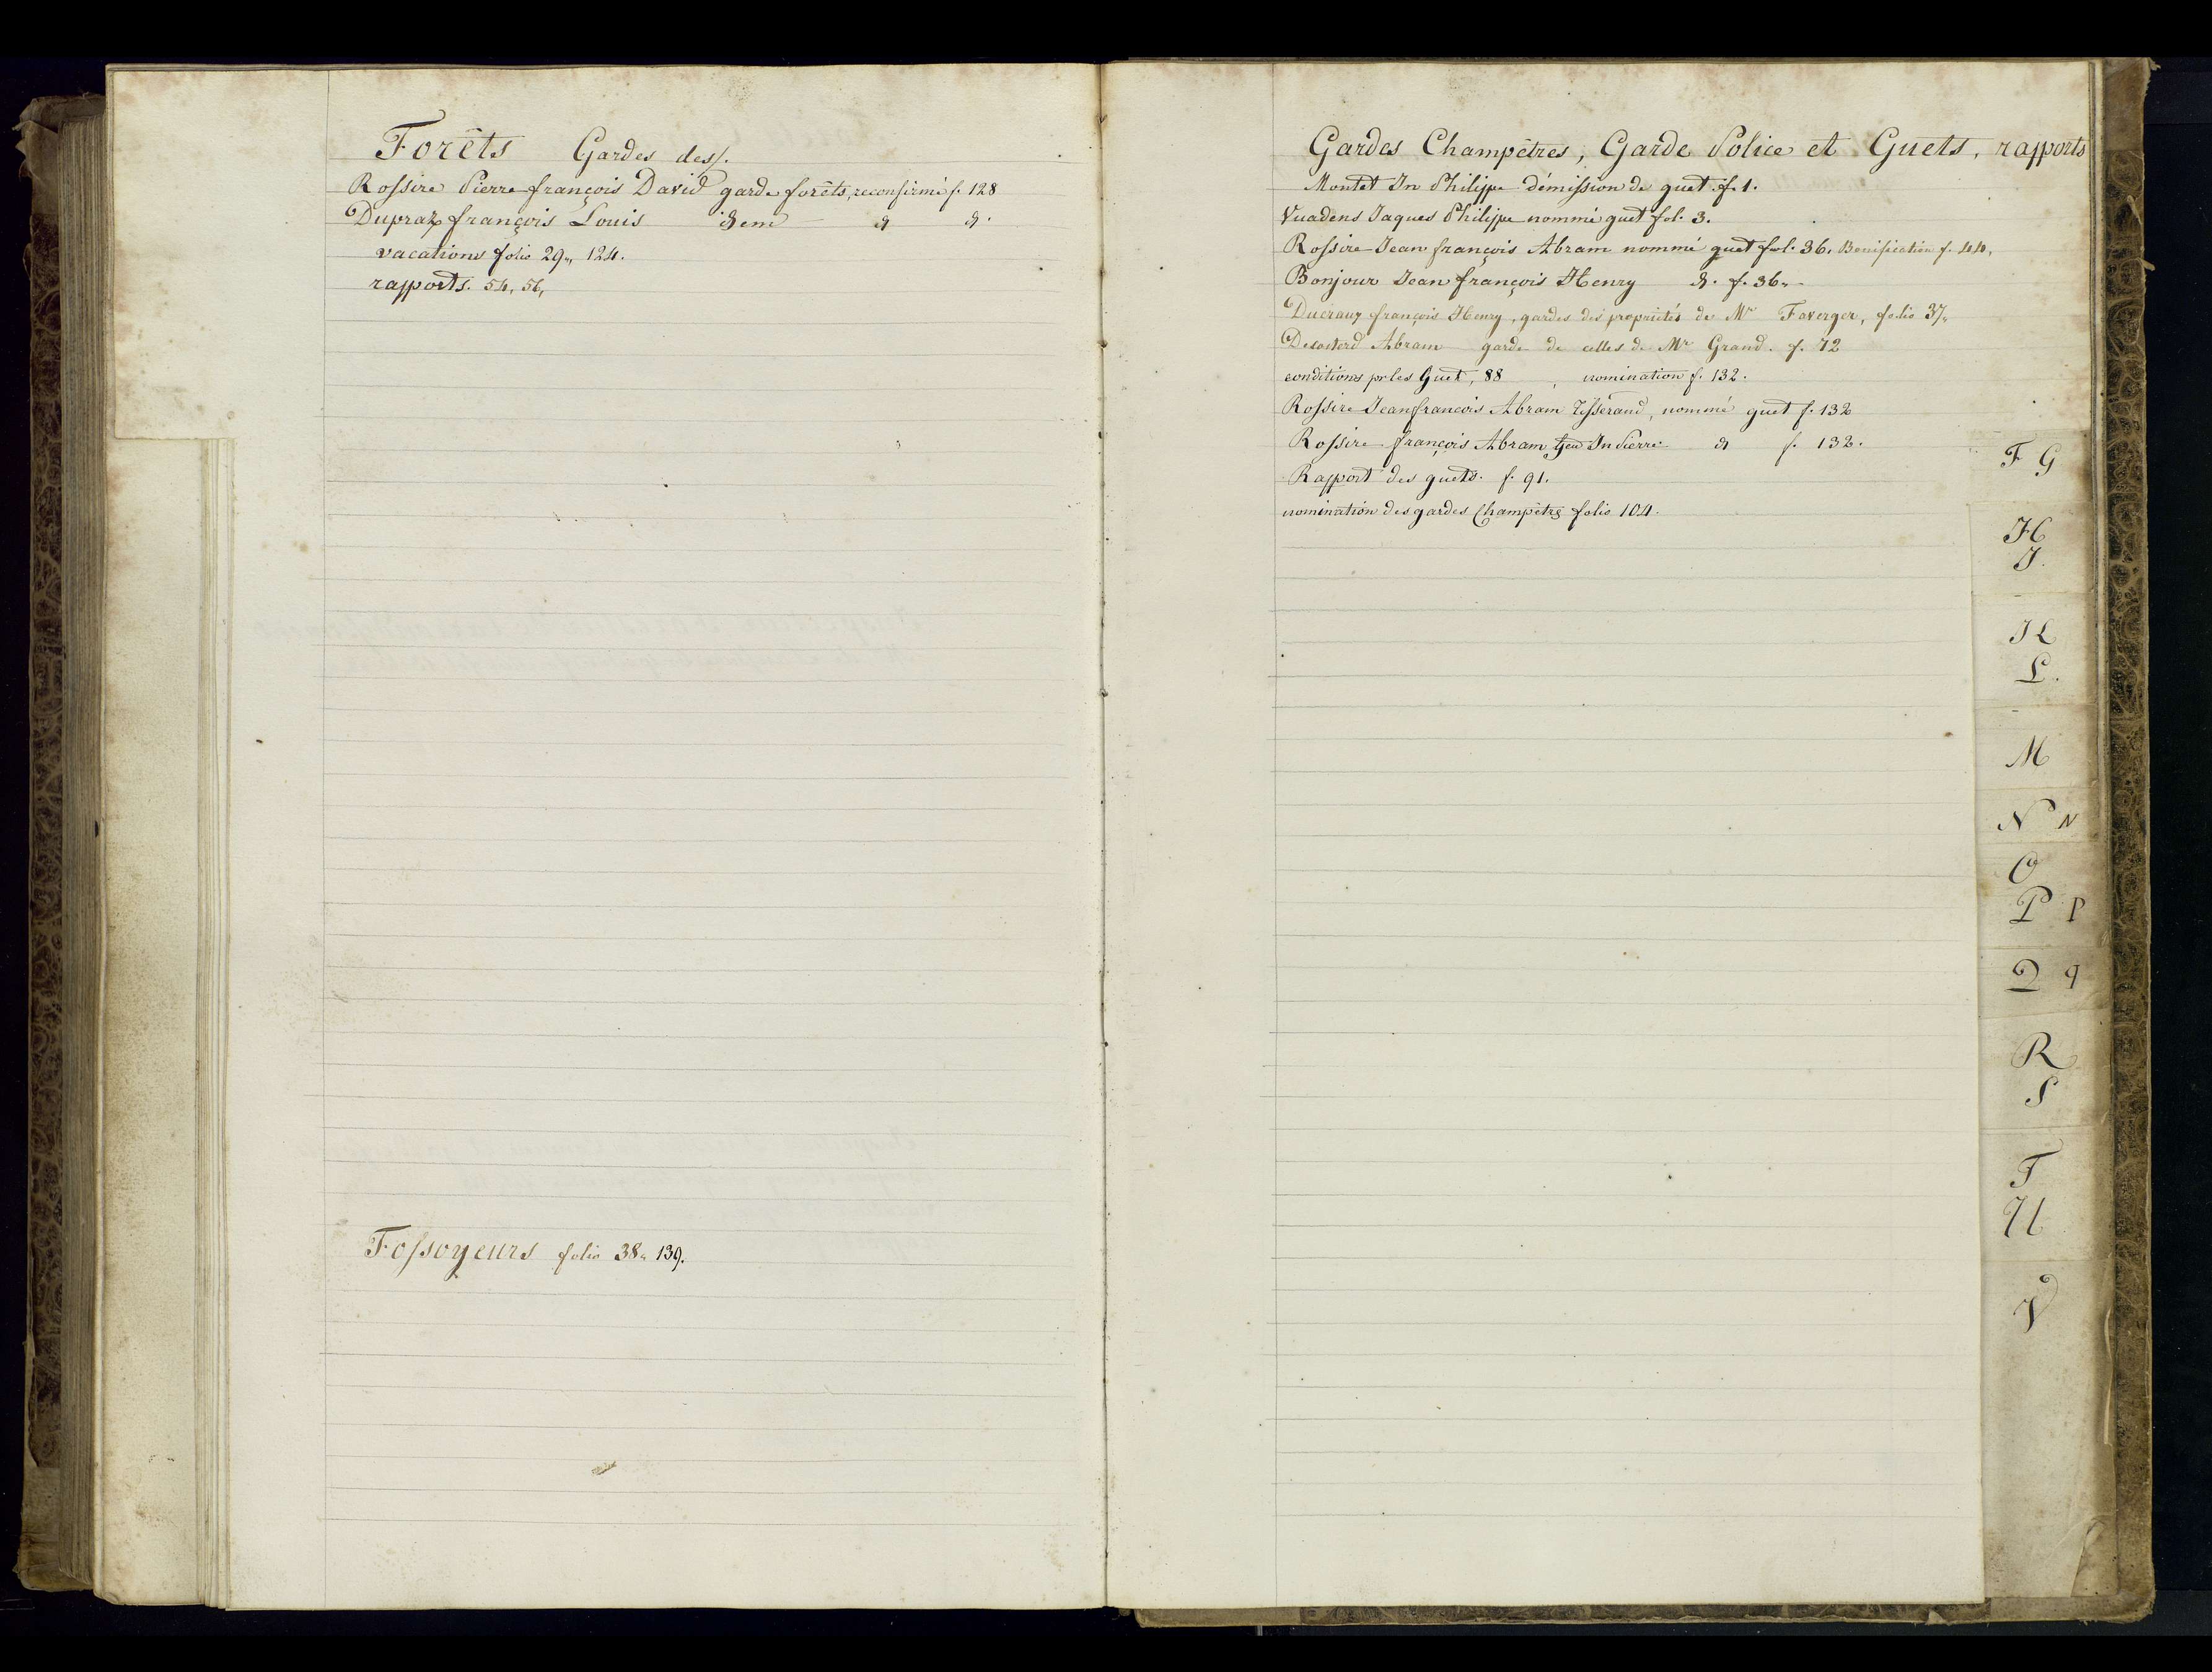 Forêts Gardes des/.
Rossire Pierre françois David garde forêts, reconfirmé f. 128
Dupraz françois Louis idem d d.
vacations folio 29„ 124.
rapports. 54, 56,
Fossoyeurs folio 38„ 139.
Gardes Champêtres, Garde Police et Guets, rapports
Montet Jn Philippe démission de guet f. 1.
Vuadens Jaques Philippe nommé guet fol. 3.
Rossire Jean françois Abram nommé guet fol. 36. Bonification f. 44,
Bonjour Jean françois Henry d. f. 36„
Ducraux françois Henry, gardes des propriétés de Mr Faverger, folio 37„
Decosterd Abram garde de celles de Mr Grand. f. 72
conditions pr les Guet, 88, nomination f. 132.
Rossire Jean francois Abram Tisserand, nommé guet f. 132
Rossire françois Abram feu Jn Pierre d f. 132.
Rapport des guets. f. 91.
nomination des gardes Champêtrs folio 104.
F G
H
I.
K
L.
M
N N
O
P P
Q q
R
S
T
U
V